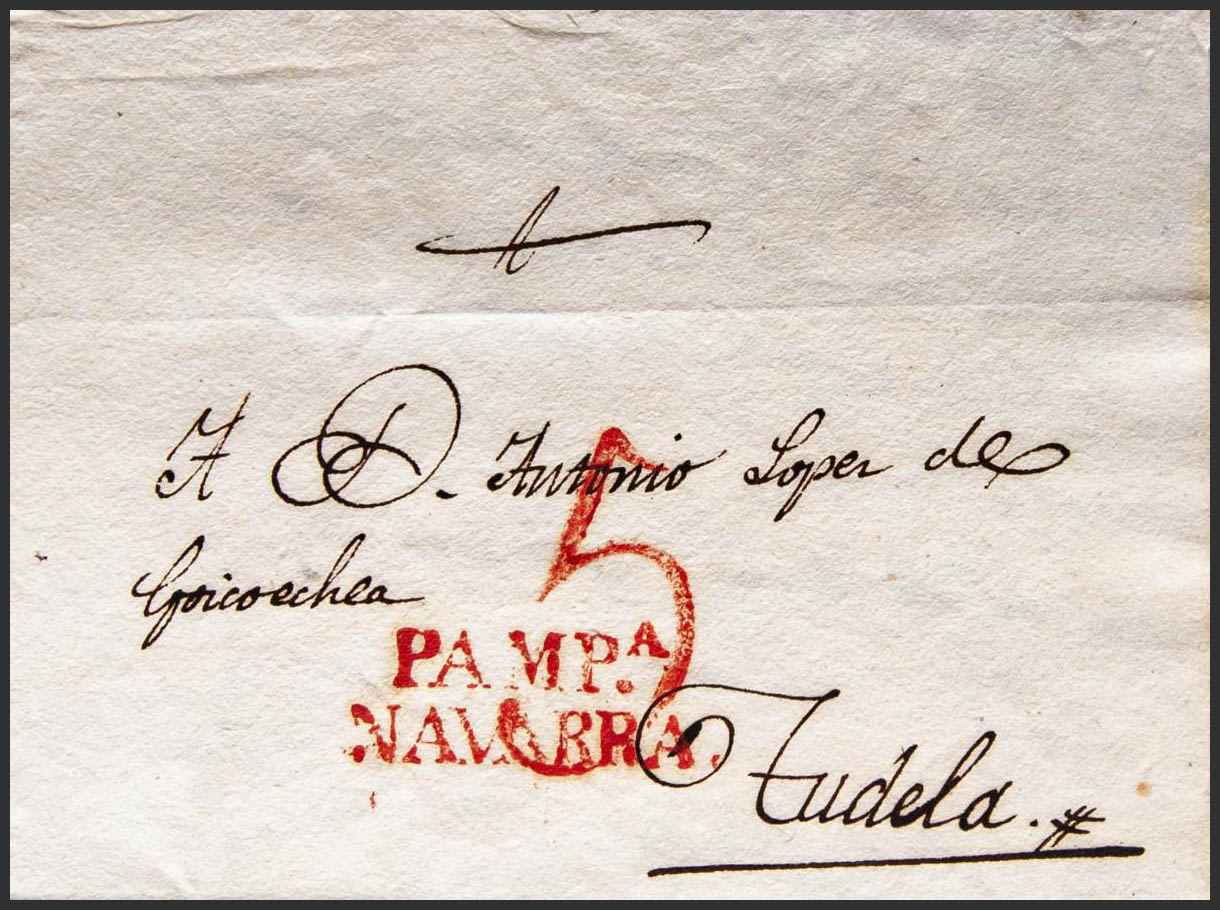 A D. Antonio Lopez de
Goicoechea
5
PAMP.A
NAVARRA.
Tudela.